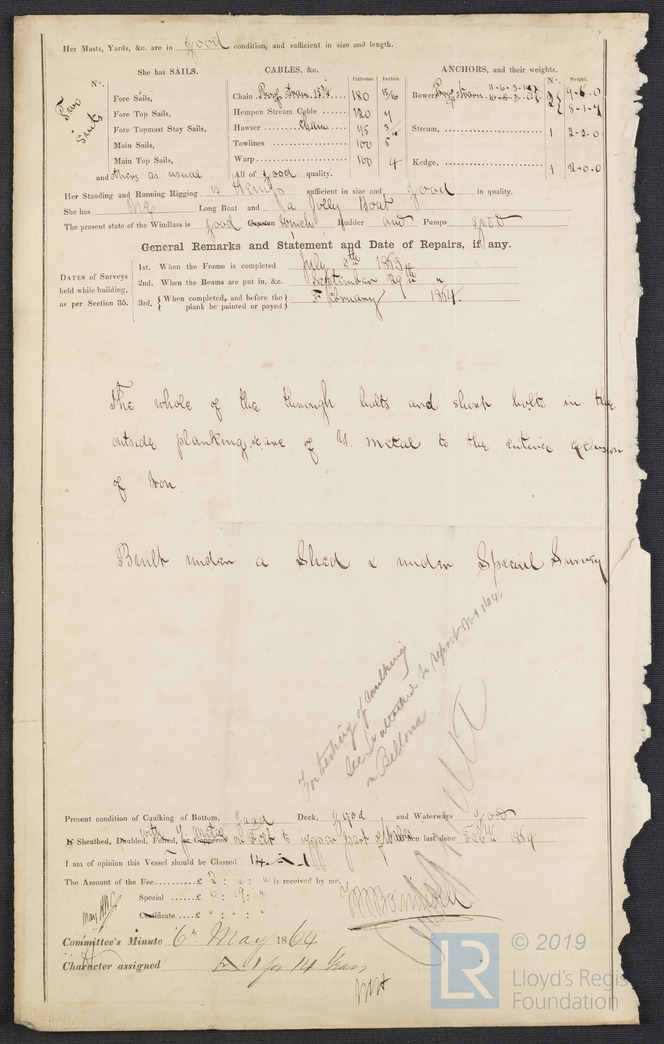 Her Masts, Yards, &c. are in good condition, and sufficient in size and length.
She has SAILS.
CABLES, &c.
Fathoms.
Inches.
ANCHORS, and their weights.
Nº.
Weight.
Nº.
Two
Suits
Fore Sails,
Fore Top Sails,
Fore Topmast Stay Sails,
Main Sails,
Main Top Sails,
and others as usual
Chain 180 15/16
Hempen Stream Cable 120 7
Hawser chain 75
Towlines 100 5
Warp 100 4
All of good quality.
Bower
9-6-0
8-1-7
Stream, 1 2-2-0
Kedge, 1 2-0-0
Her Standing and Running Rigging is Hemp sufficient in size and good in quality.
She has One Long Boat and a Jolly Boat
The present state of the Windlass is good Capstan Winch Rudder and Pumps good
General Remarks and Statement and Date of Repairs, if any.
DATES of Surveys
held while building,
as per Section 35.
1st. When the Frame is completed July 8th 1863
2nd. When the Beams are put in, &c. September 29th "
3rd. { When completed, and before the plank be painted or payed } February 1864.
The whole of the through bolts and short bolts in the
outside planking &c are of Y. metal to the entire
of Iron.
Built under a Shed & under Special Survey
For testing of caulking
see attached to report No 164
on Bellona
Present condition of Caulking of Bottom, good Deck, good and Waterways good
Sheathed, Doubled, Felted, or Coppered with Y. Metal on Felt to upper part of wales When last done Feby 1864
I am of opinion this Vessel should be Classed 14 A 1
The Amount of the Fee £ 2 : " : " is received by me,
Special £ 6 : 19 : "
Certificate £ " : " : "
Committee's Minute 6th May 1864
Character assigned A 1 for 14 Years
LR
© 2019
Lloyd's Regis
Foundation